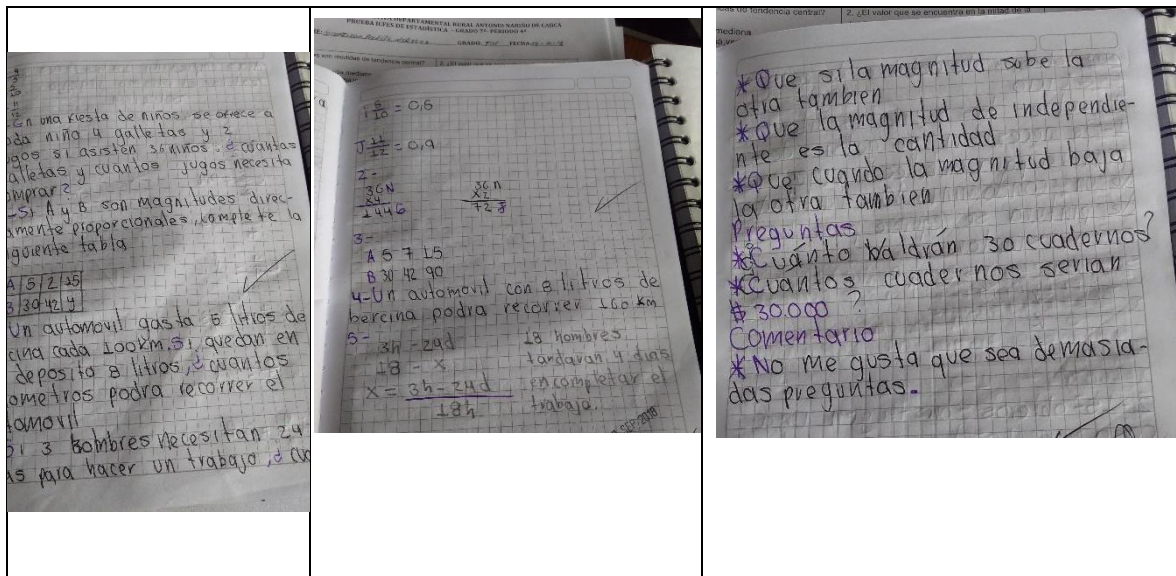 En una fiesta de niños, se ofrece a
da niño 4 galletas y 2
gos si asisten 36 niños. ¿ cuantas
alletas y cuantos jugos necesita
omprar?
-Si A y B son magnitudes direc-
amente proporcionales, complete la
iguiente tabla
A 5 2 15
B 30 42 y
Un automovil gasta 5 litros de
cina cada 100km. Si quedan en
deposito 8 litros, ¿ cuantos
ometros podra recorrer el
tamovil
Si 3 hombres necesitan 24
as para hacer un trabajo, ¿ cu
DEPARTAMENTAL RURAL ANTONIO NARIÑO DE
PRUEBA ICFES DE ESTADÍSTICA - GRADO 7º- PERIODO 4º
GRADO: FECHA
son medidas de tendencia central?
I 6/10 = 0,6
J 11/12 = 0,9
2-
36N
x4
144G
36 n
x2
72 J
3-
A 5 7 15
B 30 42 90
4-Un automovil con 8 litros de
bencina podra recorrer 160 km
5-
3h - 24d
18 - x
x = 3h - 24d / 18h
18 hombres
tardaran 4 dias
en completar el
trabajo.
SEP. 2018
de tendencia central?
2. ¿El valor que se encuentra en la mitad de
mediana
*Que si la magnitud sube la
otra tambien
*Que la magnitud de independie-
nte es la cantidad
*Que cuando la magnitud baja
la otra tambien
Preguntas
*¿Cuánto baldrán 30 cuadernos?
*¿Cuantos cuadernos serian
$ 30.000 ?
Comentario
*No me gusta que sea demasia-
das preguntas.